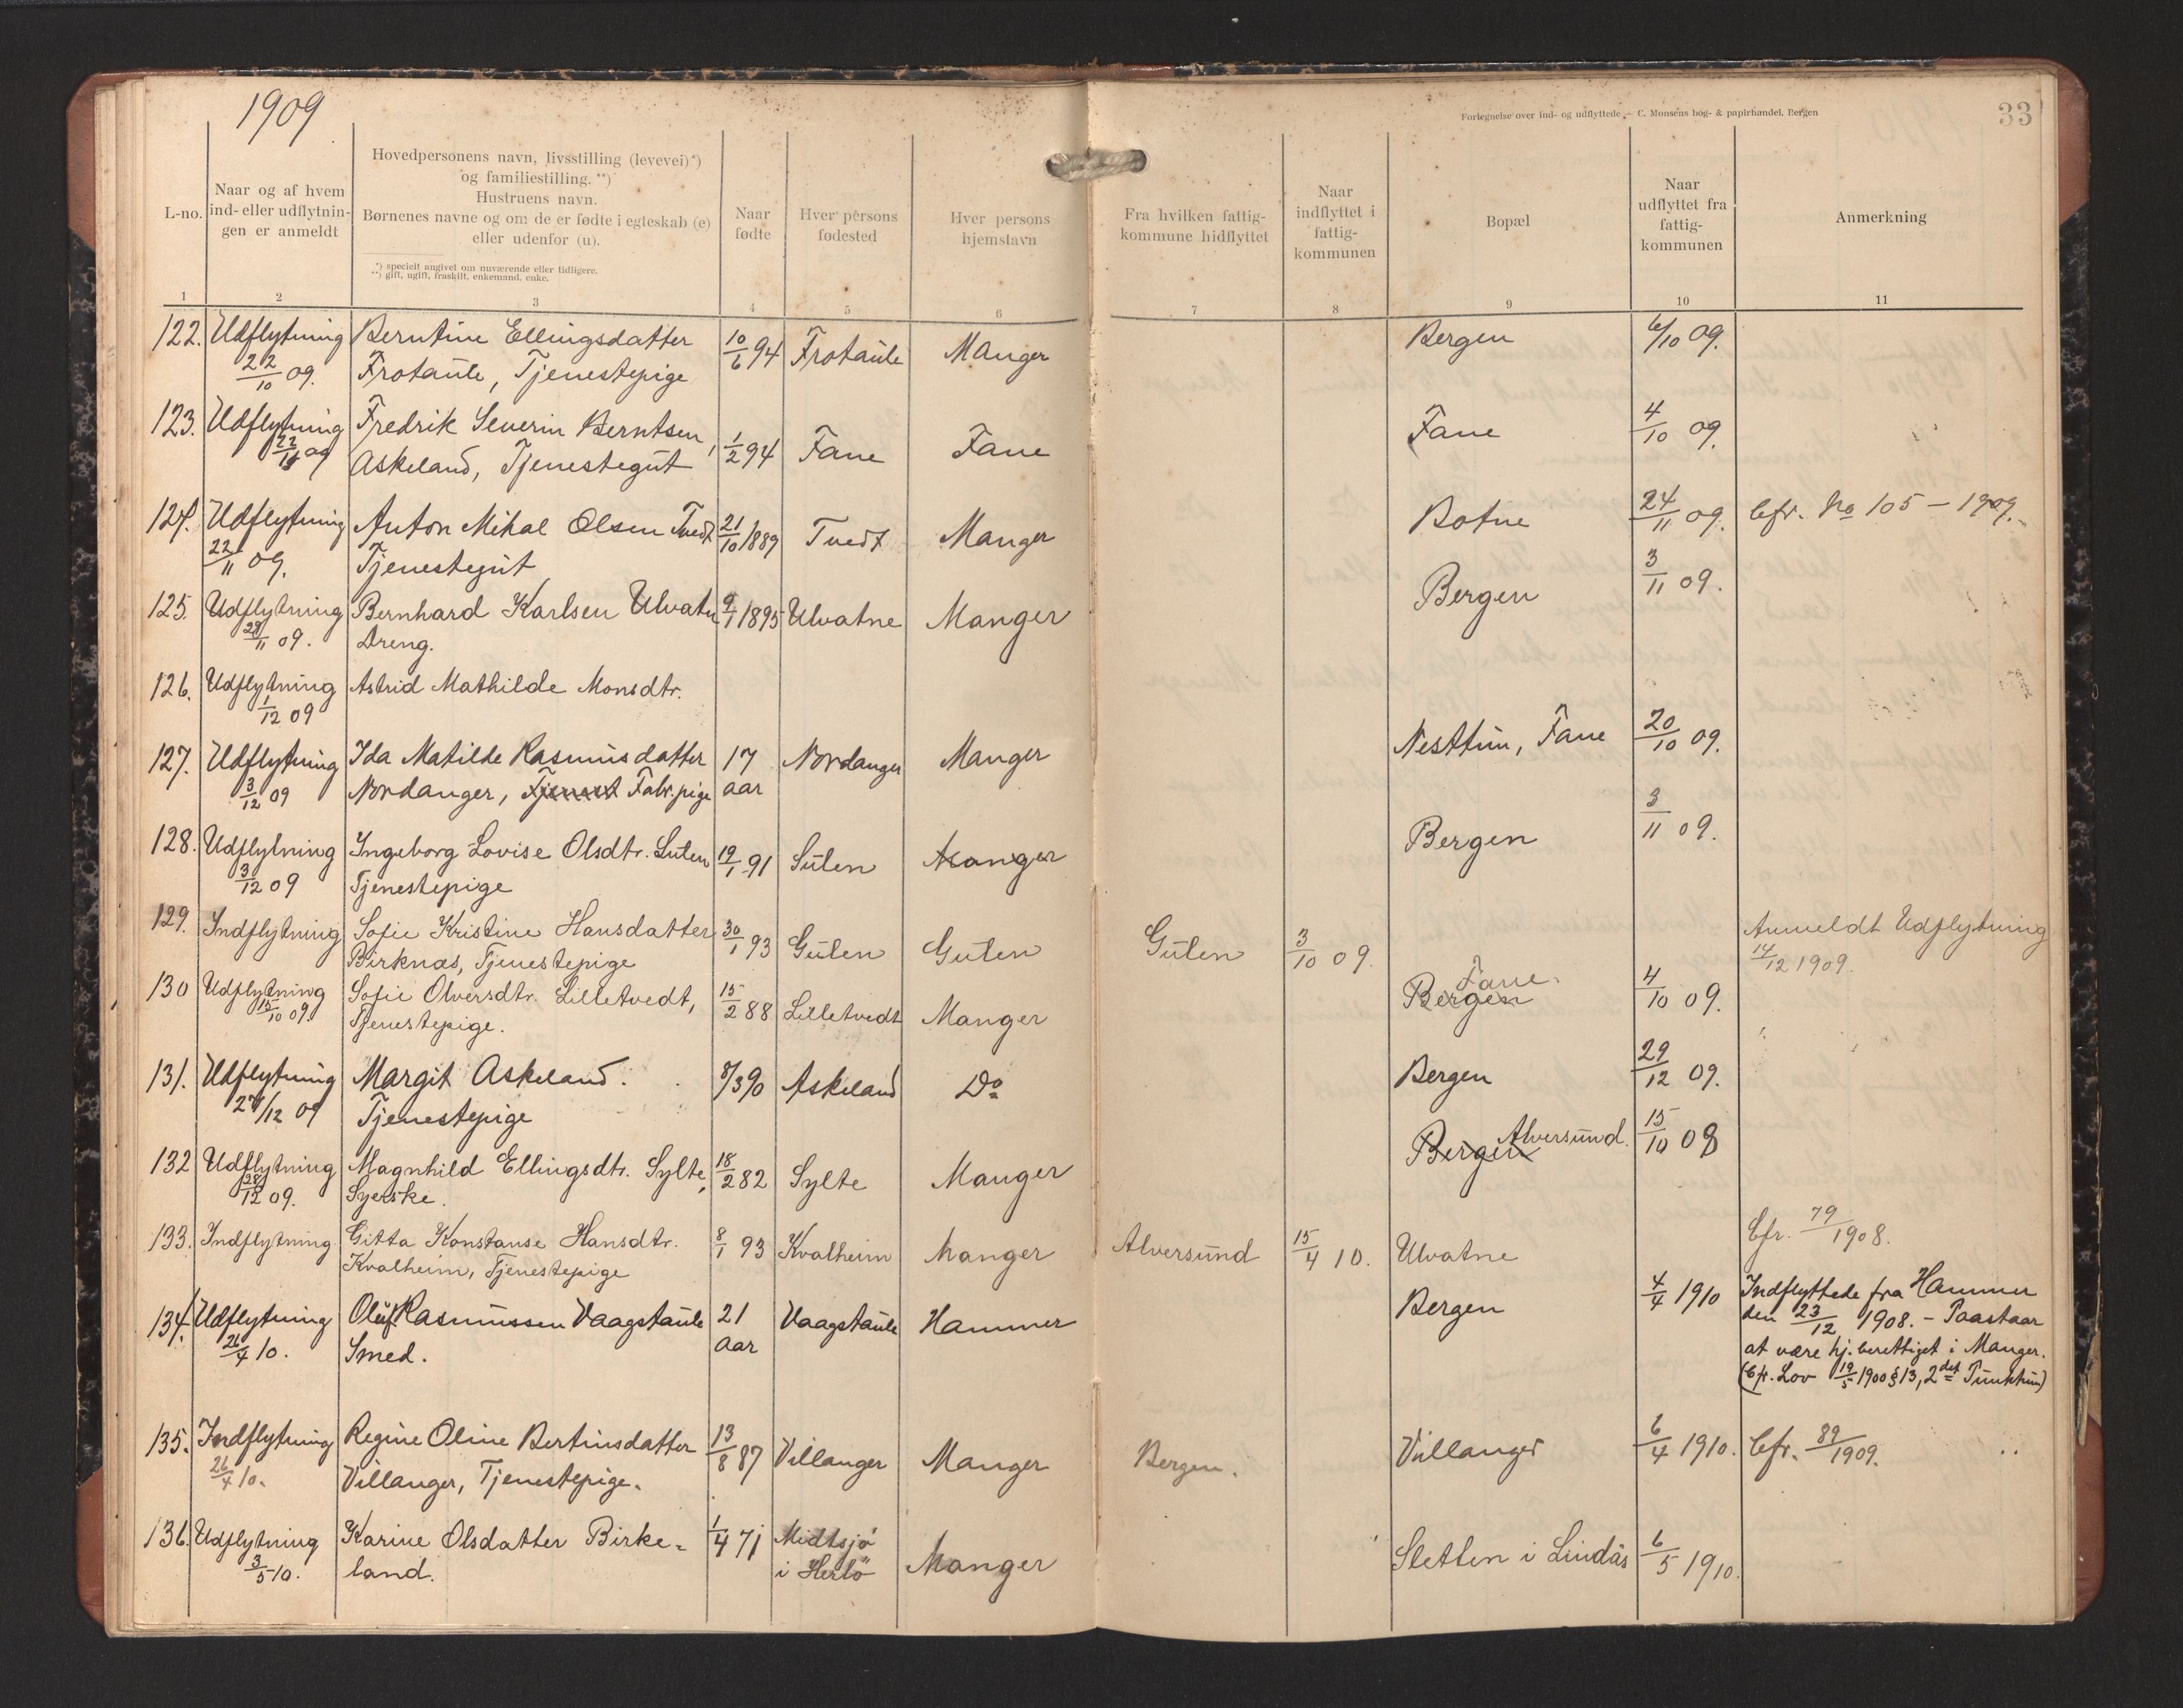 1909
Fortegnelse over ind- og udflyttede. — C. Monsens bog- & papirhandel, Bergen
33
L-no.
Naar og af hvem
ind- eller udflytnin-
gen er anmeldt
Hovedpersonens navn, livsstilling (levevei)*)
og familiestilling. **)
Hustruens navn.
Børnenes navne og om de er fødte i egteskab (e)
eller udenfor (u).
*) specielt angivet om nuværende eller tidligere.
**) gift, ugift, fraskilt, enkemand, enke.
Naar
fødte
Hver persons
fødested
Hver persons
hjemstavn
Fra hvilken fattig-
kommune hidflyttet
Naar
indflyttet i
fattig-
kommunen
Bopæl
Naar
udflyttet fra
fattig-
kommunen
Anmerkning
1 2 3 4 5 6 7 8 9 10 11
122. Udflytning Berntine Ellingsdatter 10/6 94 Frotaule Manger Bergen 6/10 09.
22/10 09. Frotaule, Tjenestepige
123. Udflytning Fredrik Severin Berntsen, 1/2 94 Fane Fane Fane 4/10 09.
22/11 09 Askeland, Tjenestegut
124. Udflytning Anton Mikal Olsen Tvedt 21/10 1889 Tvedt Manger Botne 24/11 09. Cfr. No 105 – 1909.
22/11 09. Tjenestegut
125. Udflytning Bernhard Karlsen Ulvatn 9/1 1895 Ulvatne Manger Bergen 3/11 09.
28/11 09. Dreng.
126. Udflytning Astrid Mathilde Monsdtr.
1/12 09
127. Udflytning Ida Matilde Rasmusdatter 17 Nordanger Manger Nesttun, Fane 20/10 09.
3/12 09 Nordanger, Tjenest Fabr.pige aar
128. Udflytning Ingeborg Lovise Olsdtr. Sulen 19/1 91 Sulen Manger Bergen 3/11 09.
3/12 09 Tjenestepige
129. Indflytning Sofie Kristine Hansdatter 30/1 93 Gulen Gulen Gulen 3/10 09. Anmeldt Udflytning
Birknæs, Tjenestepige 14/12 1909.
130 Udflytning Sofie Olversdtr. Lilletvedt, 15/2 88 Lilletvedt Manger Bergen Fane. 4/10 09.
15/10 09. Tjenestepige.
131. Udflytning Margit Askeland. 8/3 90 Askeland Do Bergen 29/12 09.
27/12 09 Tjenestepige
132 Udflytning Magnhild Ellingsdtr. Sylte, 18/2 82 Sylte Manger Bergen Alversund. 15/10 08
28/12 09. Syerske.
133. Indflytning Gitta Konstanse Hansdtr. 8/1 93 Kvalheim Manger Alversund 15/4 10. Ulvatne Cfr. 79/1908.
Kvalheim, Tjenestepige
134. Udflytning Oluf Rasmussen Vaagstaule 21 Vaagstaule Hammer Bergen 4/4 1910 Indflyttede fra Hammer
26/4 10. Smed. aar den 23/12 1908. – Paastaar
at være hj.berettiget i Manger.
(Cfr. Lov 19/5 1900 § 13, 2det Punktum)
135. Indflytning Regine Oline Bertinsdatter 13/8 87 Villanger Manger Bergen. Villanger 6/4 1910. Cfr. 89/1909.
26/4 10. Villanger, Tjenestepige.
136. Udflytning Karine Olsdatter Birke- 1/4 71 Midtsjö Manger Sletten i Lindås 6/5 1910.
3/5 10. land. i Herlö